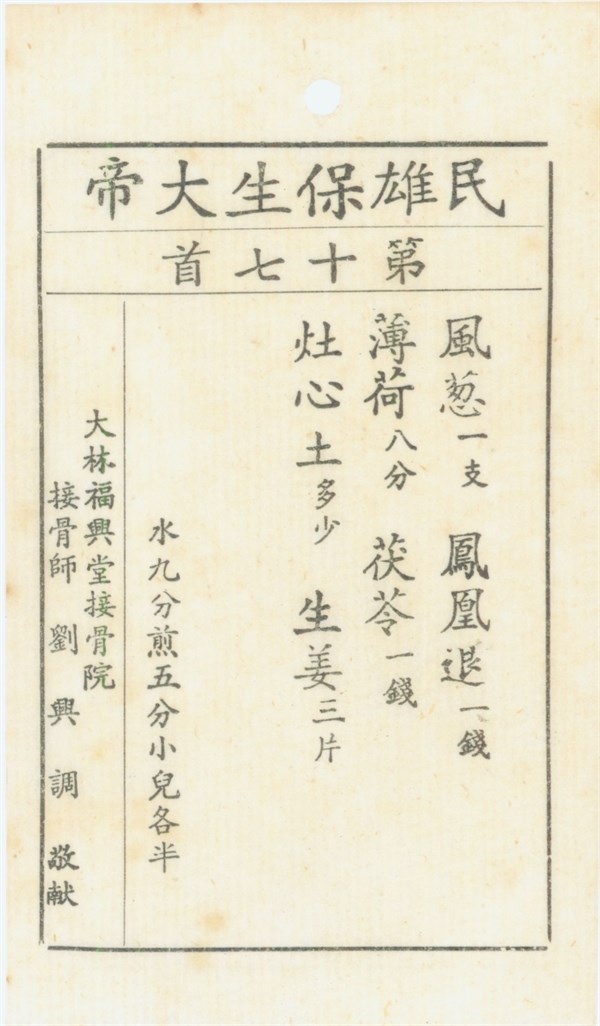 民雄保生大帝
第十七首
風葱一支 鳳凰退一錢
薄荷八分 茯苓一錢
灶心土多少 生姜三片
水九分煎五分小兒各半
大林福興堂接骨院
接骨師 劉興調 敬献